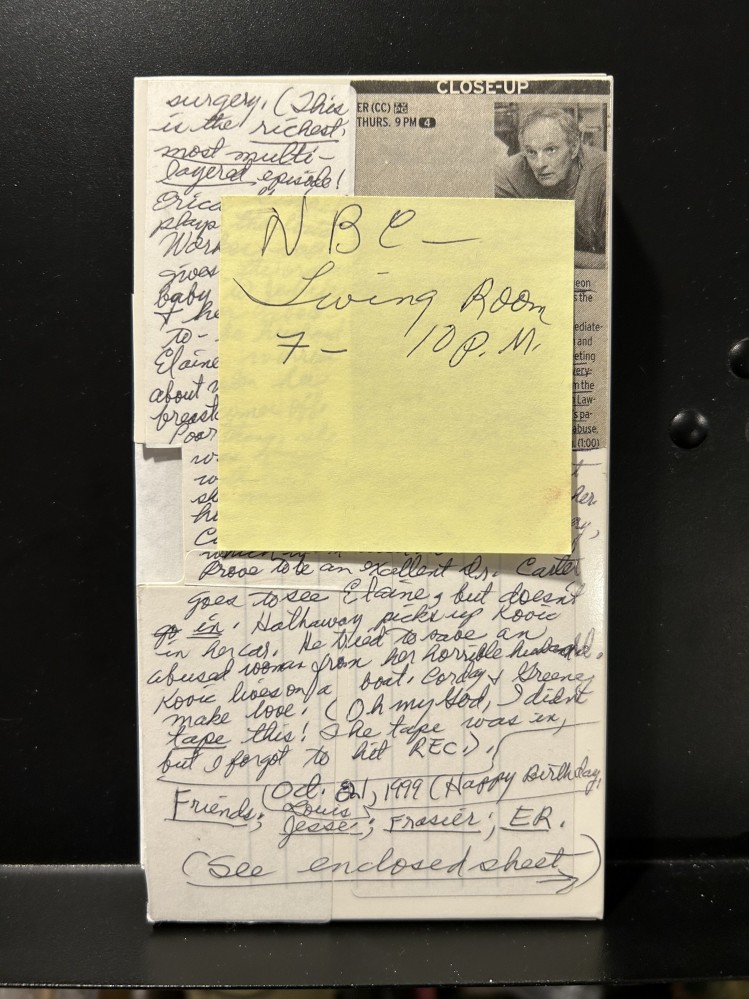 surgery. (This
is the richest,
most multi-
layered episode!
Erica
plays
Work
gives
baby
& he
to-
Elaine
about
breast
Poor
CLOSE-UP
ER (CC)
THURS. 9 PM 4
eon
s the
ediate-
and
eting
very-
m the
Law-
s pa-
abuse.
(1:00)
NBC –
Living Room
7 – 10 P.M.
her
prove to be an excellent Dr. Carter
goes to see Elaine, but doesn't
go in. Hathaway picks up Kovic
in her car. He tried to save an
abused woman from her horrible husband.
Kovic lives on a boat. Corday & Greene
make love. (Oh my God, I didn't
tape this! The tape was in,
but I forgot to hit REC.).
(Oct. 21, 1999 (Happy Birthday,
Louis
Friends; Jesse; Frasier; ER.
(See enclosed sheet)